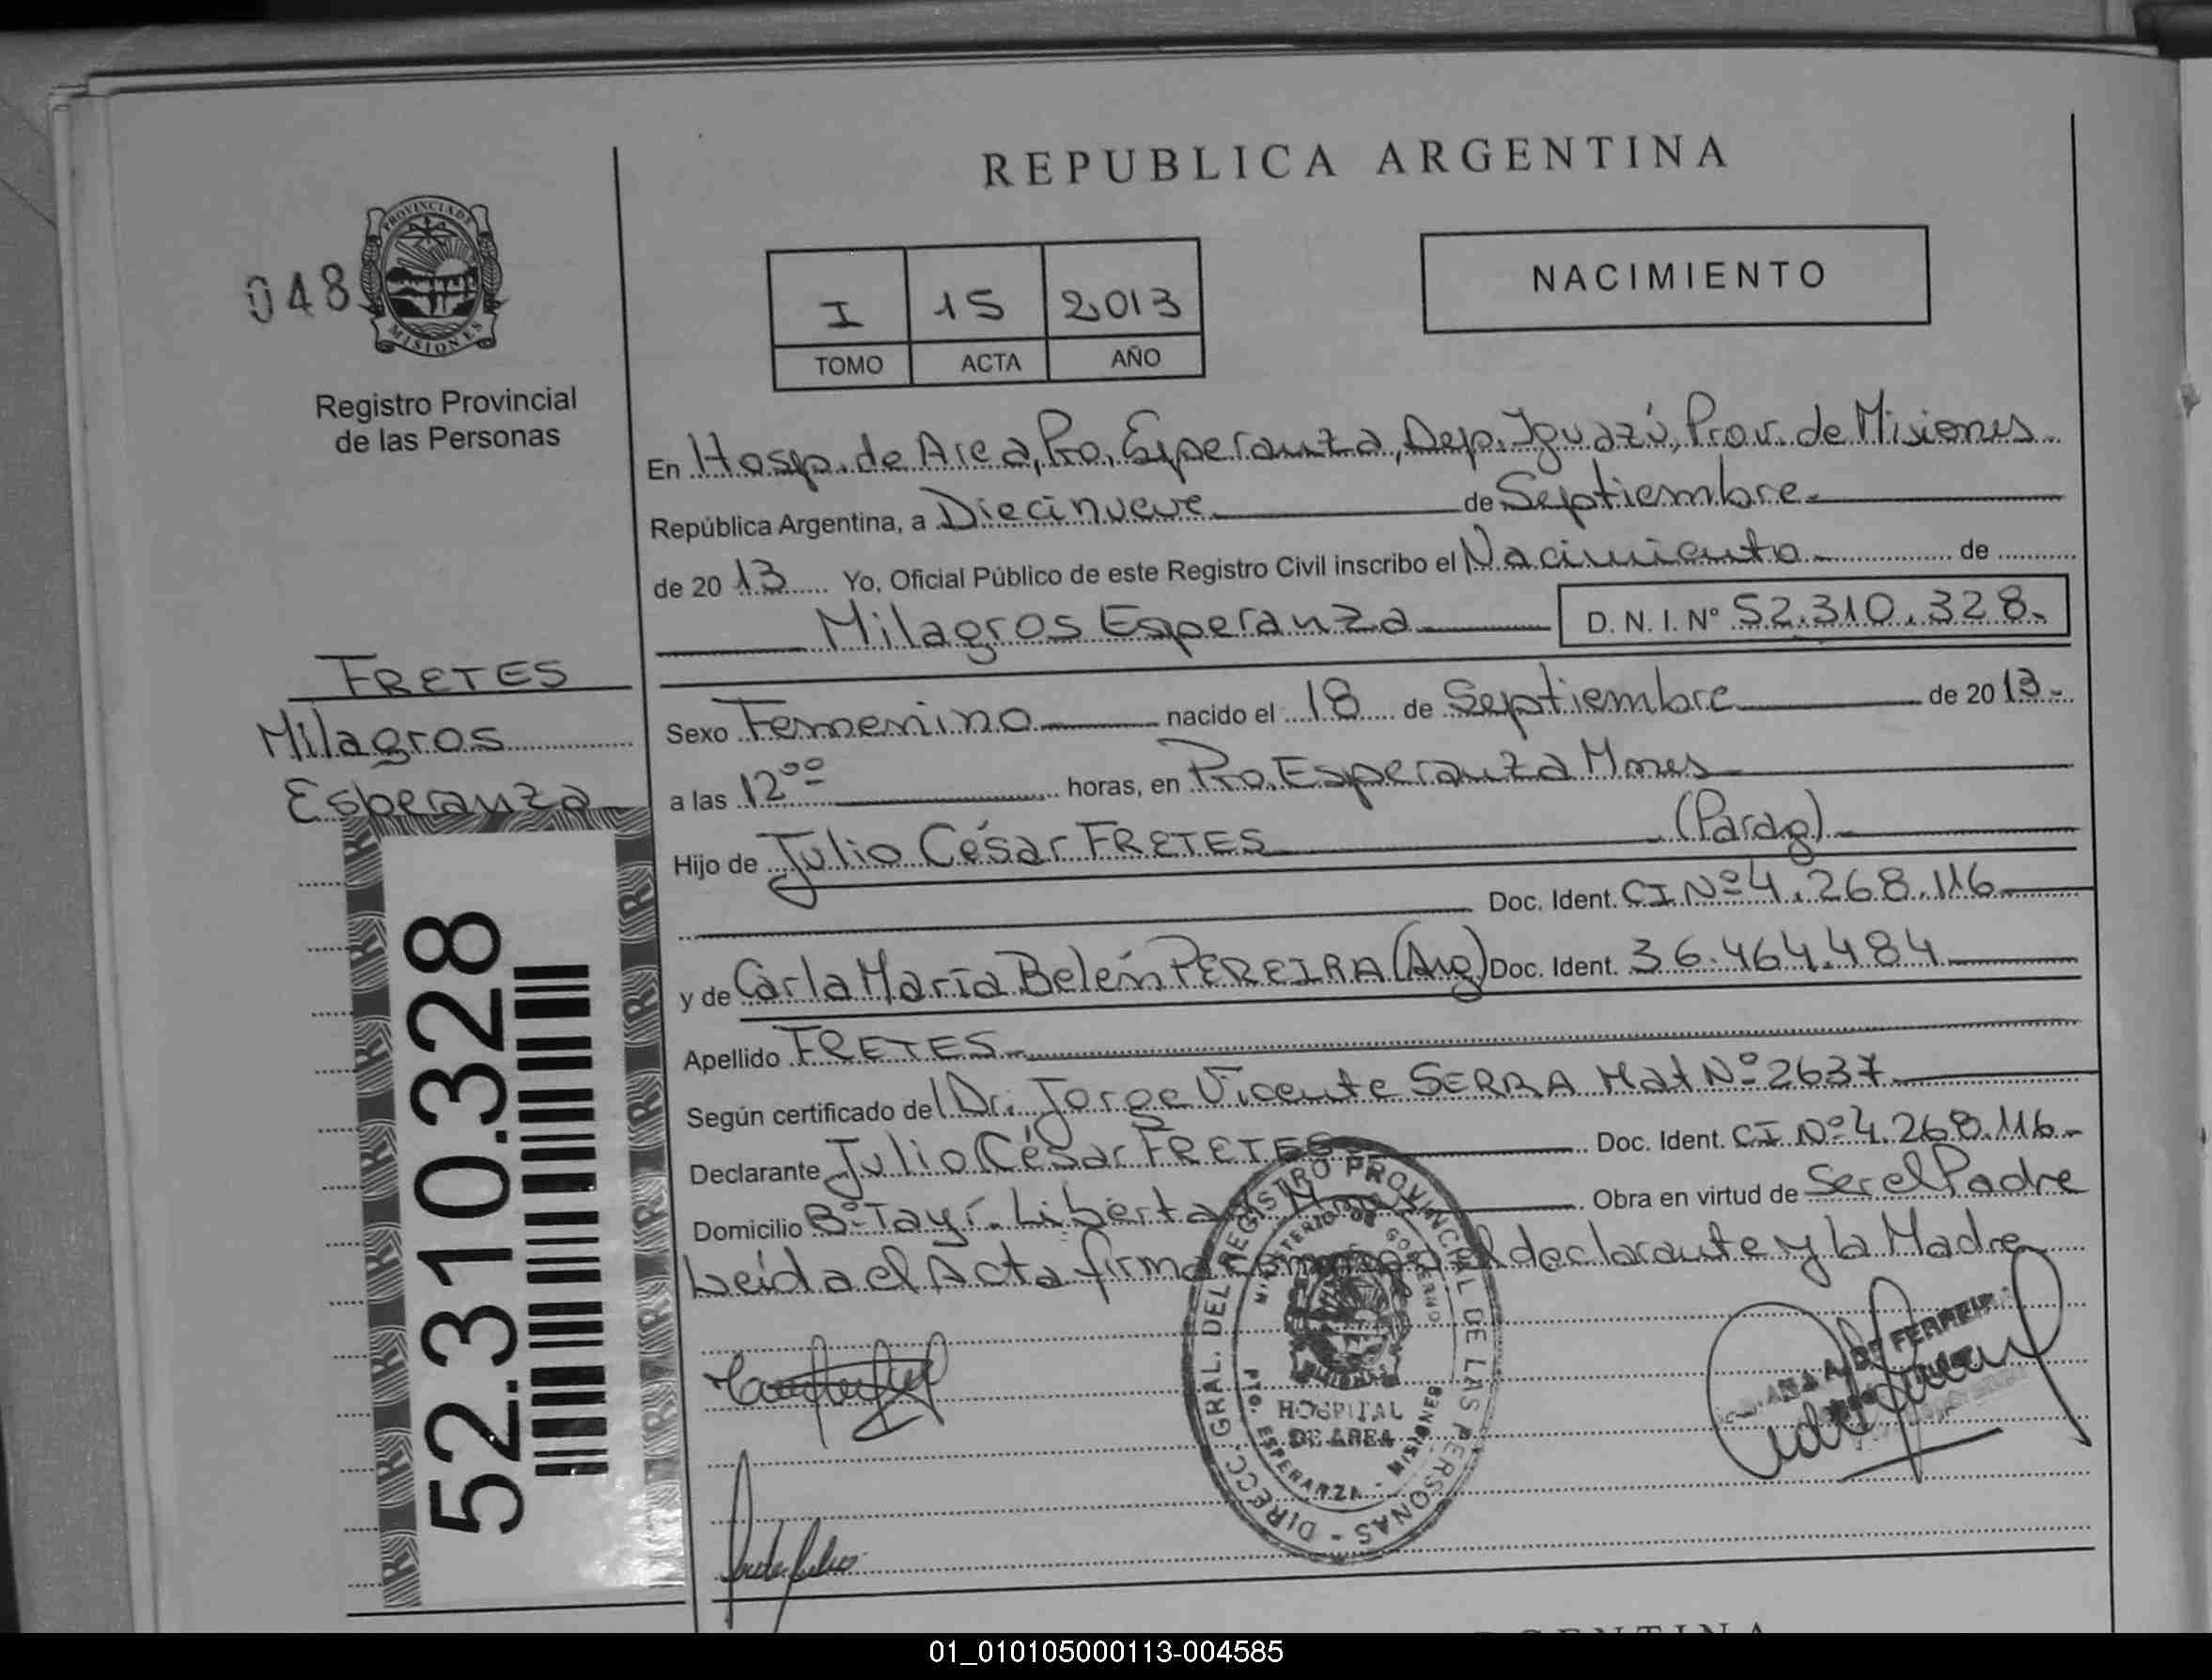 REPUBLICA ARGENTINA
048
PROVINCIA DE
MISIONES
Registro Provincial
de las Personas
I 15 2013
TOMO ACTA AÑO
NACIMIENTO
En Hosp. de Area, Pto. Esperanza, Dep. Iguazú, Prov. de Misiones
República Argentina, a Diecinueve de Septiembre
de 20 13 Yo, Oficial Público de este Registro Civil inscribo el Nacimiento de
Milagros Esperanza D. N. I. Nº 52.310.328
FRETES
Milagros
Esperanza
52.310.328
Sexo Femenino nacido el 18 de Septiembre de 20 13
a las 12°° horas, en Pto. Esperanza Mnes
Hijo de Julio César FRETES (Parag)
Doc. Ident. CI Nº 4.268.116
y de Carla María Belén PEREIRA (Arg) Doc. Ident. 36.464.484
Apellido FRETES
Según certificado del Dr. Jorge Vicente SERRA Mat Nº 2637
Declarante Julio César FRETES Doc. Ident. CI Nº 4.268.116
Domicilio Bº Tayí. Libertad Obra en virtud de Ser el Padre
Leída el Acta firma conmigo el declarante y la Madre
DIRECC. GRAL. DEL REGISTRO PROVINCIAL DE LAS PERSONAS
MINISTERIO DE GOBIERNO
MISIONES
HOSPITAL
DE AREA
PTO. ESPERANZA - MISIONES
A. DE FERREIR
ARGENTINA
01_010105000113-004585